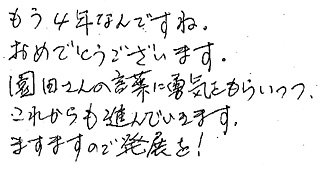 もう4年なんですね。
おめでとうございます。
園田さんの言葉に勇気をもらいつつ、
これからも進んでいきます。
ますますのご発展を!